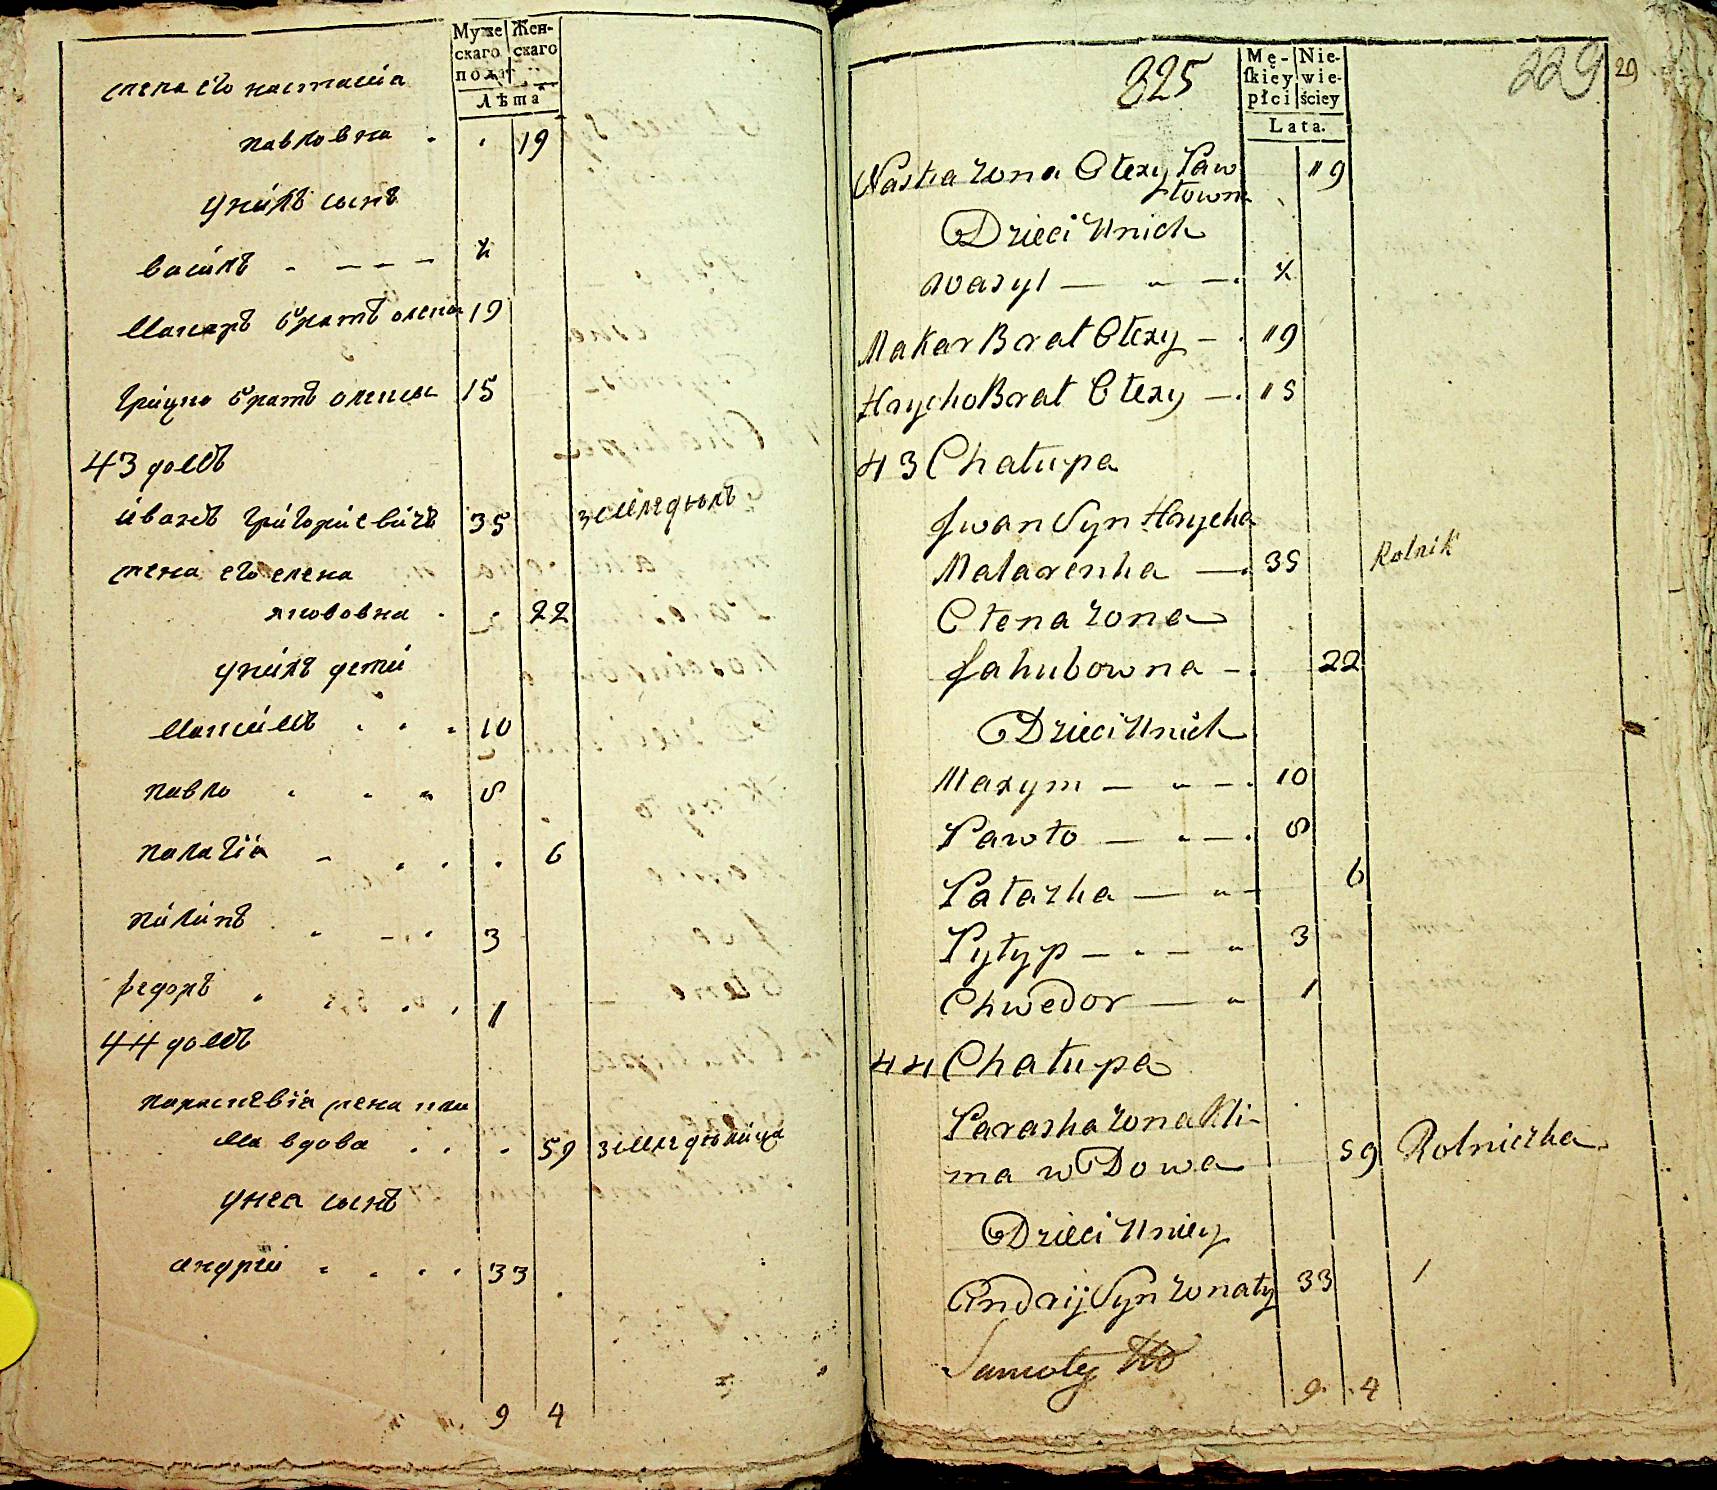 Муже Жен-
скаго скаго
пола
Лѣта
жена его настасіа
павловна . . 19
унихъ сынъ
василь . — — — ½
Макаръ братъ олексы 19
Грицко братъ олексы 15
43 домъ
иванъ григориевичъ 35 землѣделъ
жена его елена
якововна . . 22
унихъ дети
Максимъ . . . 10
павло . . . 8
палагіа — . . . 6
пилипъ . — . 3
федоръ . . . 1
44 домъ
параскевіа жена кли
ма вдова . . . 59 землѣделица
унеа сынъ
андрей . . . . 33
9 4
825
229
29
Mę- Nie-
skiey wie-
płci ściey
Lata.
Nastia żona Ołexy Paw
łowna 19
Dzieci Unich
Wasyl — " — . ½
Makar Brat Ołexy — . 19
Hrycko Brat Ołexy — . 15
43 Chałupa
Jwan Syn Hrycka
Matarenka — . 35 Rolnik
Ołena żona
Jakubowna — . 22
Dzieci Unich
Maxym — " — . 10
Pawło — " — . 8
Pałazka — " — 6
Pyłyp — . — " 3
Chwedor — " 1
44 Chałupa
Paraska żona Kli-
ma wDowa 59 Rolniczka
Dzieci Uniey
Andrij Syn żonaty 33
9. 4